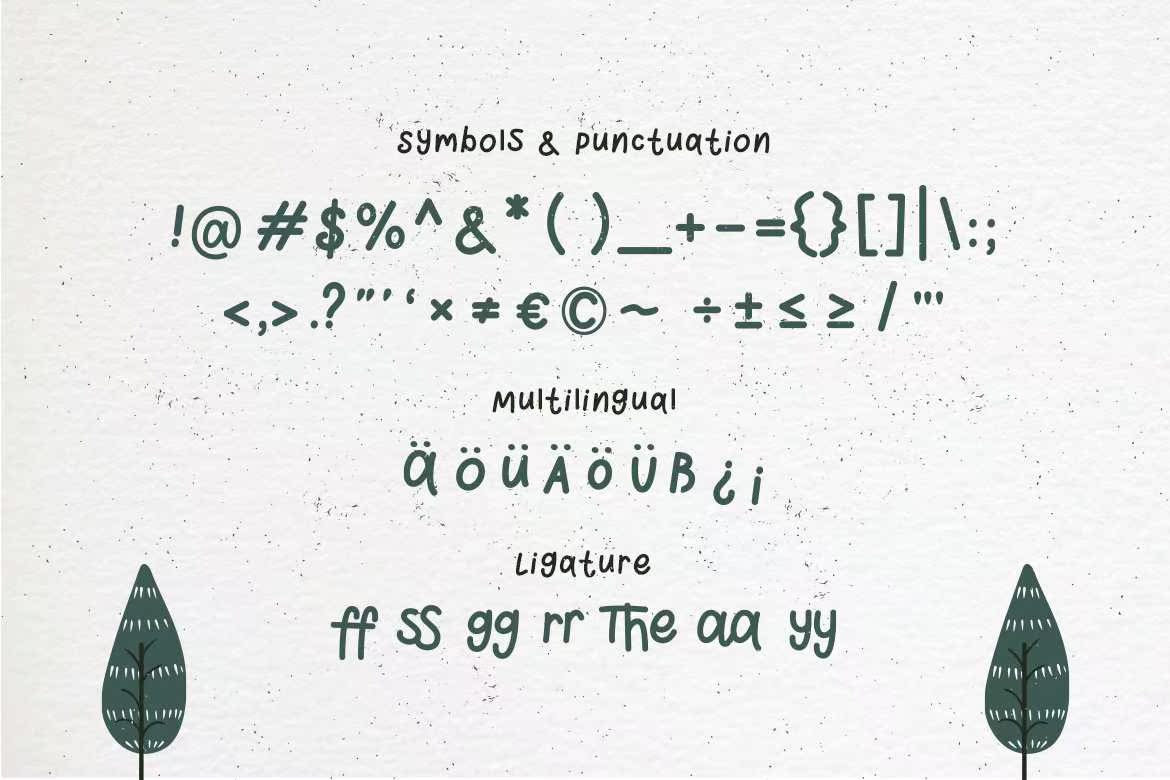 symbols & punctuation
!@#$%^&*()_+-={}[]|\:;
<,>.?”’‘×≠€©~÷±≤≥/"'
Multilingual
äöüÄÖÜß¿¡
Ligature
ff ss gg rr The aa yy